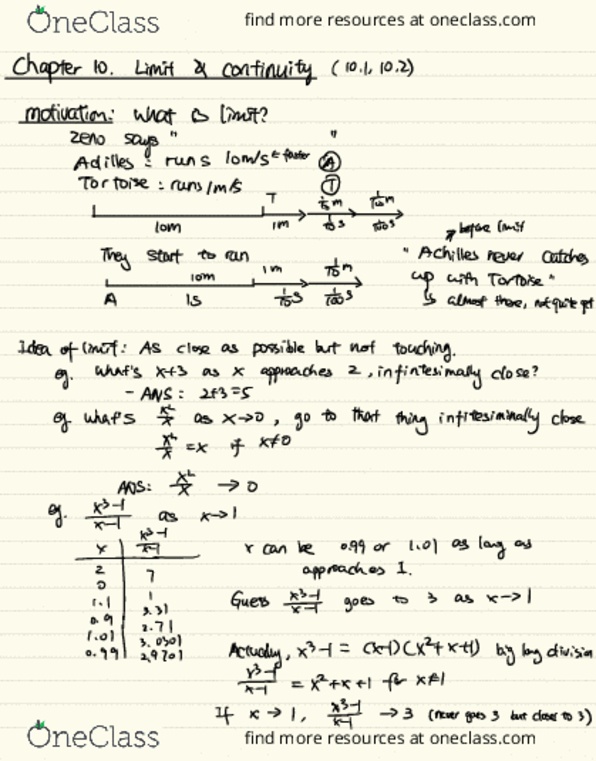 OneClass find more resources at oneclass.com
Chapter 10. Limit & continuity (10.1, 10.2)
motivation: What is limit?
Zeno says " "
Achilles : runs 10m/s ← faster A
Tortoise : runs 1m/s T
T 1/10 m 1/100 m
10m 1m 1/10 s 1/100 s
before limit
They start to run "Achilles never catches
10m 1m 1/10 m up with Tortoise"
A 1s 1/10 s 1/100 s ↳ almost there, not quite yet
Idea of limit: As close as possible but not touching.
eg. What's x+3 as x approaches 2, infintesimally close?
- ANS: 2+3=5
eg what's x²/x as x→0, go to that thing infitesiminally close
x²/x = x if x≠0
ANS: x²/x → 0
eg. x³-1/x-1 as x→1
x x³-1/x-1
x can be 0.99 or 1.01 as long as
approaches 1.
2 7
0 1
1.1 3.31
0.9 2.71
1.01 3.0301
0.99 2.9701
Guess x³-1/x-1 goes to 3 as x→1
Actually, x³-1 = (x-1)(x²+x+1) by long division
x³-1/x-1 = x²+x+1 for x≠1
If x→1, x³-1/x-1 → 3 (never goes 3 but closer to 3)
OneClass find more resources at oneclass.com